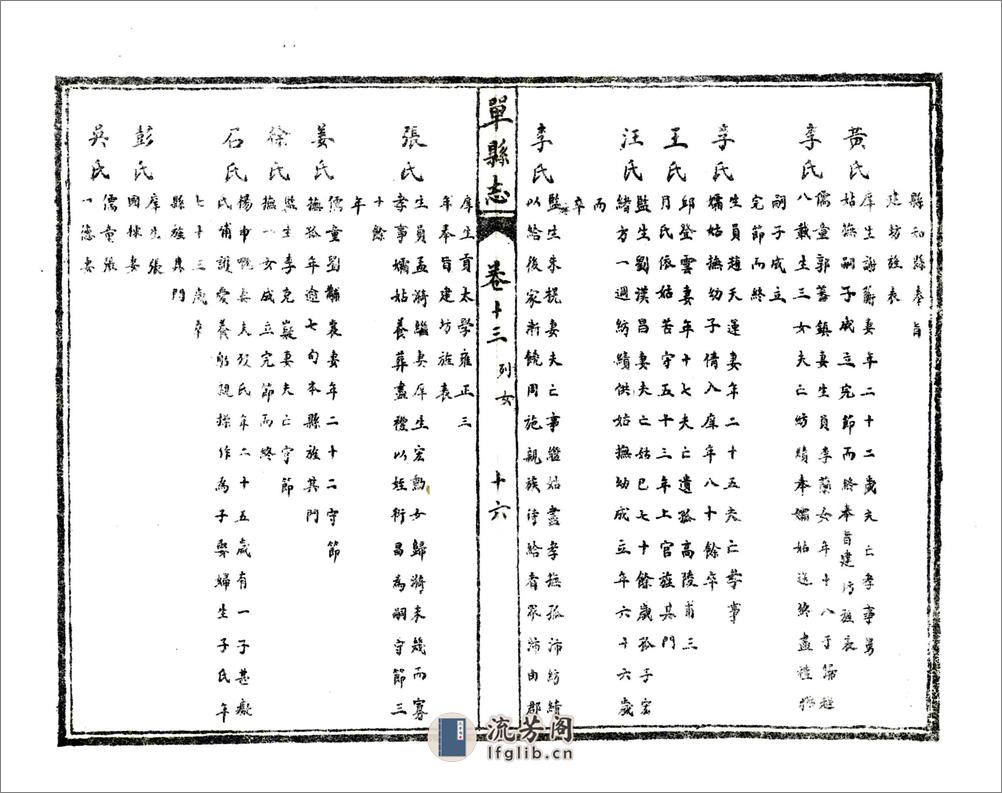 縣知縣奉旨
建坊旌表
黃氏
庠生謝蔚妻年二十二歲夫亡孝事
姑撫嗣子成立完節而終奉旨建坊旌表
李氏
儒童郭蕃鎮妻生員李蘭女年十八于歸
八載生三女夫亡紡績奉孀姑送終盡禮
嗣子成立
完節而終
李氏
生員趙天運妻年二十五夫亡孝事
孀姑撫幼子倩入庠年八十餘卒
王氏
邱登雲妻年十七夫亡遺孤高陵甫三
月氏依姑苦守五十三年上官旌其門
汪氏
監生劉漢昌妻夫亡姑已七十餘歲孤子宏
緒方一週紡績供姑撫幼成立年六十六歲
而
卒
李氏
監生朱棁妻夫亡事繼姑盡孝撫孤沛紡績
以給後家漸饒周施親族待給者眾沛由郡
單縣志
卷十三
列女
十六
庠生貢太學雍正三
年奉旨建坊旌表
張氏
生員孟將繼妻庠生宏勳女歸將未幾而寡
孝事孀姑養葬盡禮以姪衍昌為嗣守節三
十餘
年
姜氏
儒童劉黼袞妻年二十二守節
撫孤年逾七旬本縣旌其門
徐氏
監生李克嶷妻夫亡守節
撫一女成立完節而終
石氏
楊申妻夫歿氏年二十五歲有一子甚癡
氏甫護愛養躬親操作為子娶婦生子氏年
七十三歲卒
縣旌其門
彭氏
庠生張
國棟妻
吳氏
儒童張
一德妻